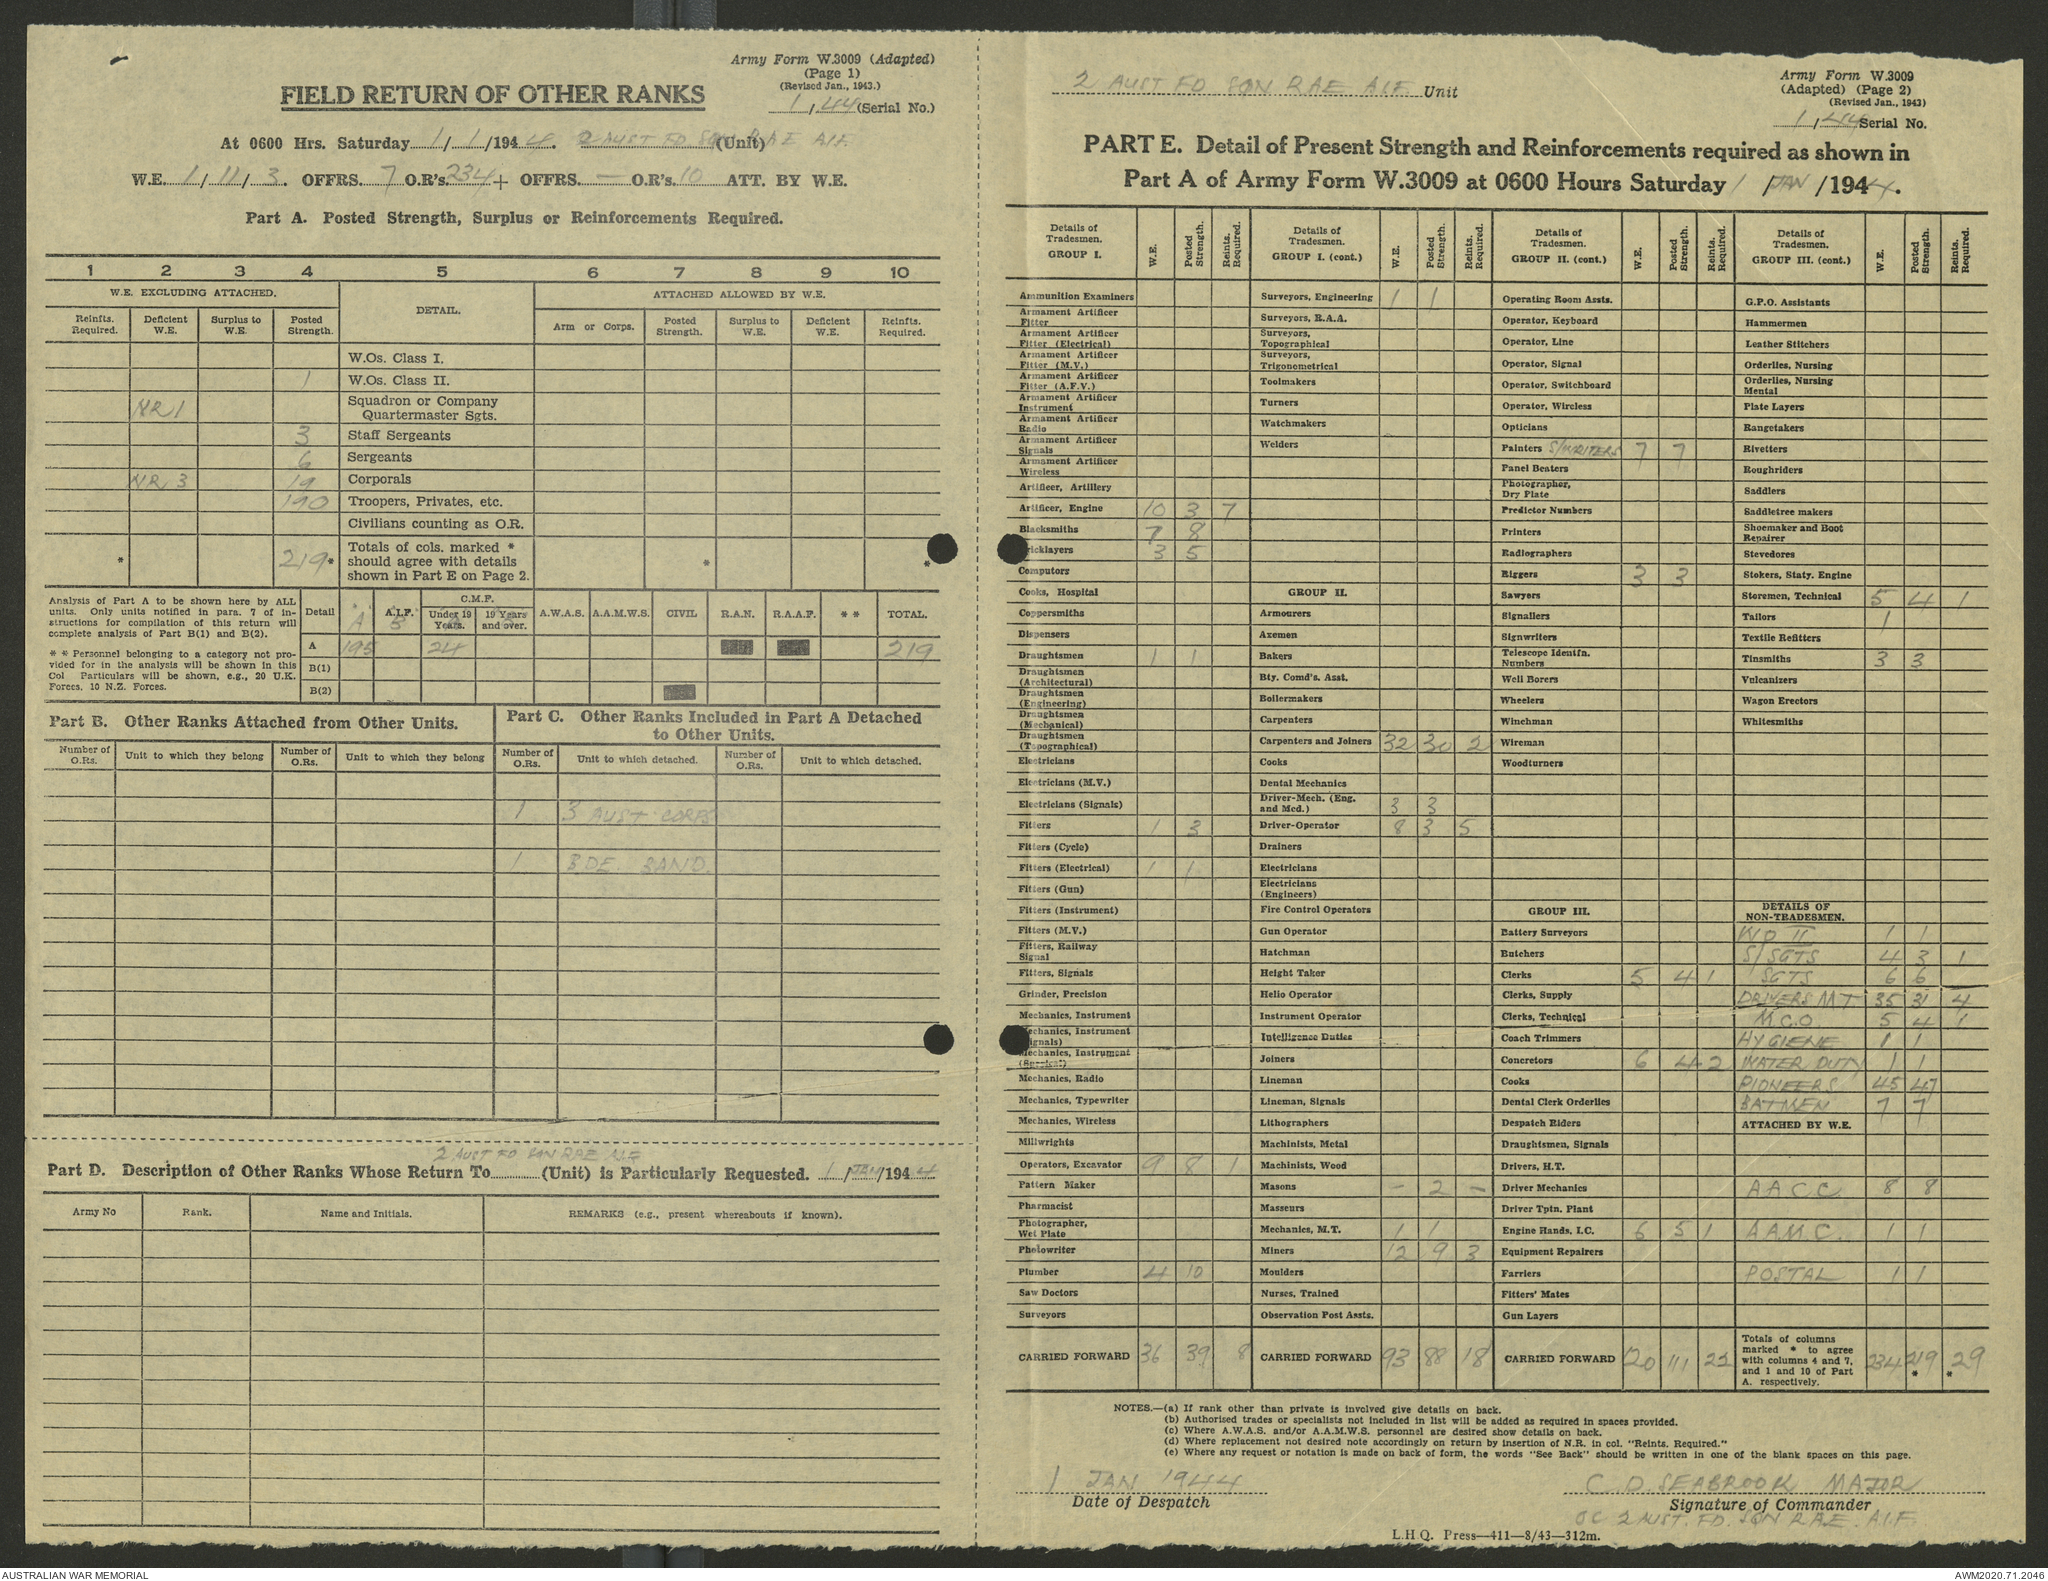 Army Form W.3009 (Adapted)
(Page 1)
(Revised Jan., 1943.)
1, 44 (Serial No.)
FIELD RETURN OF OTHER RANKS
At 0600 Hrs. Saturday 1/1/1944. 2 AUST FD SQN RAE AIF. (Unit)
W.E. 1/11/3. OFFRS. 7 O.R's. 234 + OFFRS. — O.R's. 10 ATT. BY W.E.
Part A. Posted Strength, Surplus or Reinforcements Required.
1 2 3 4 5 6 7 8 9 10
W.E. EXCLUDING ATTACHED. DETAIL. ATTACHED ALLOWED BY W.E.
Reinfts. Required. Deficient W.E. Surplus to W.E. Posted Strength. Arm or Corps. Posted Strength. Surplus to W.E. Deficient W.E. Reinfts. Required.
W.Os. Class I.
1 W.Os. Class II.
NR 1 Squadron or Company Quartermaster Sgts.
3 Staff Sergeants
6 Sergeants
NR 3 19 Corporals
190 Troopers, Privates, etc.
Civilians counting as O.R.
* 219* Totals of cols. marked * should agree with details shown in Part E on Page 2. * *
Analysis of Part A to be shown here by ALL units. Only units notified in para. 7 of instructions for compilation of this return will complete analysis of Part B(1) and B(2).
* * Personnel belonging to a category not provided for in the analysis will be shown in this Col. Particulars will be shown, e.g., 20 U.K. Forces, 10 N.Z. Forces.
Detail A.I.F. C.M.F. Under 19 Years. 19 Years and over. A.W.A.S. A.A.M.W.S. CIVIL R.A.N. R.A.A.F. * * TOTAL.
A 195 24 219
B(1)
B(2)
Part B. Other Ranks Attached from Other Units.
Number of O.Rs. Unit to which they belong Number of O.Rs. Unit to which they belong
Part C. Other Ranks Included in Part A Detached to Other Units.
Number of O.Rs. Unit to which detached. Number of O.Rs. Unit to which detached.
1 3 AUST CORPS
1 BDE BAND.
2 AUST FD SQN RAE AIF
Part D. Description of Other Ranks Whose Return To (Unit) is Particularly Requested. 1/JAN/1944
Army No Rank. Name and Initials. REMARKS (e.g., present whereabouts if known).
2 AUST FD SQN RAE AIF Unit
Army Form W.3009
(Adapted) (Page 2)
(Revised Jan., 1943)
1, 44 Serial No.
PART E. Detail of Present Strength and Reinforcements required as shown in
Part A of Army Form W.3009 at 0600 Hours Saturday 1/JAN/1944.
Details of Tradesmen. GROUP I. W.E. Posted Strength. Reints. Required.
Ammunition Examiners
Armament Artificer Fitter
Armament Artificer Fitter (Electrical)
Armament Artificer Fitter (M.V.)
Armament Artificer Fitter (A.F.V.)
Armament Artificer Instrument
Armament Artificer Radio
Armament Artificer Signals
Armament Artificer Wireless
Artificer, Artillery
Artificer, Engine 10 3 7
Blacksmiths 7 8
ricklayers 3 5
Computors
Cooks, Hospital
Coppersmiths
Dispensers
Draughtsmen 1 1
Draughtsmen (Architectural)
Draughtsmen (Engineering)
Draughtsmen (Mechanical)
Draughtsmen (Topographical)
Electricians
Electricians (M.V.)
Electricians (Signals)
Fitters 1 3
Fitters (Cycle)
Fitters (Electrical) 1 1
Fitters (Gun)
Fitters (Instrument)
Fitters (M.V.)
Fitters, Railway Signal
Fitters, Signals
Grinder, Precision
Mechanics, Instrument
echanics, Instrument ignals)
Mechanics, Instrument
Mechanics, Radio
Mechanics, Typewriter
Mechanics, Wireless
Millwrights
Operators, Excavator 9 8 1
Pattern Maker
Pharmacist
Photographer, Wet Plate
Photowriter
Plumber 4 10
Saw Doctors
Surveyors
CARRIED FORWARD 36 39 8
Details of Tradesmen. GROUP I. (cont.) W.E. Posted Strength. Reints. Required.
Surveyors, Engineering 1 1
Surveyors, R.A.A.
Surveyors, Topographical
Surveyors, Trigonometrical
Toolmakers
Turners
Watchmakers
Welders
GROUP II.
Armourers
Axemen
Bakers
Bty. Comd's. Asst.
Boilermakers
Carpenters
Carpenters and Joiners 32 30 2
Cooks
Dental Mechanics
Driver-Mech. (Eng. and Med.) 3 3
Driver-Operator 8 3 5
Drainers
Electricians
Electricians (Engineers)
Fire Control Operators
Gun Operator
Hatchman
Height Taker
Helio Operator
Instrument Operator
Intelligence Duties
Joiners
Lineman
Lineman, Signals
Lithographers
Machinists, Metal
Machinists, Wood
Masons — 2 —
Masseurs
Mechanics, M.T. 1 1
Miners 12 9 3
Moulders
Nurses, Trained
Observation Post Assts.
CARRIED FORWARD 93 88 18
Details of Tradesmen. GROUP II. (cont.) W.E. Posted Strength. Reints. Required.
Operating Room Assts.
Operator, Keyboard
Operator, Line
Operator, Signal
Operator, Switchboard
Operator, Wireless
Opticians
Painters S/WRITERS 7 7
Panel Beaters
Photographer, Dry Plate
Predictor Numbers
Printers
Radiographers
Riggers 3 3
Sawyers
Signallers
Signwriters
Telescope Identfn. Numbers
Well Borers
Wheelers
Winchman
Wireman
Woodturners
GROUP III.
Battery Surveyors
Butchers
Clerks 5 4 1
Clerks, Supply
Clerks, Technical
Coach Trimmers
Concretors 6 4 2
Cooks
Dental Clerk Orderlies
Despatch Riders
Draughtsmen, Signals
Drivers, H.T.
Driver Mechanics
Driver Tptn. Plant
Engine Hands, I.C. 6 5 1
Equipment Repairers
Farriers
Fitters' Mates
Gun Layers
CARRIED FORWARD 120 111 22
Details of Tradesmen. GROUP III. (cont.) W.E. Posted Strength. Reints. Required.
G.P.O. Assistants
Hammermen
Leather Stitchers
Orderlies, Nursing
Orderlies, Nursing Mental
Plate Layers
Rangetakers
Rivetters
Roughriders
Saddlers
Saddletree makers
Shoemaker and Boot Repairer
Stevedores
Stokers, Staty. Engine
Storemen, Technical 5 4 1
Tailors 1
Textile Refitters
Tinsmiths 3 3
Vulcanizers
Wagon Erectors
Whitesmiths
DETAILS OF NON-TRADESMEN.
WO II 1 1
S/SGTS 4 3 1
SGTS 6 6
DRIVERS MT 35 31 4
M.C.O 5 4 1
HYGIENE 1 1
WATER DUTY 1 1
PIONEERS 45 47
BATMEN 7 7
ATTACHED BY W.E.
AACC 8 8
A.A.M.C. 1 1
POSTAL 1 1
Totals of columns marked * to agree with columns 4 and 7, and 1 and 10 of Part A. respectively. 234 219* 29*
NOTES.—(a) If rank other than private is involved give details on back.
(b) Authorised trades or specialists not included in list will be added as required in spaces provided.
(c) Where A.W.A.S. and/or A.A.M.W.S. personnel are desired show details on back.
(d) Where replacement not desired note accordingly on return by insertion of N.R. in col. "Reints. Required."
(e) Where any request or notation is made on back of form, the words "See Back" should be written in one of the blank spaces on this page.
1 JAN 1944
Date of Despatch
C.D. SEABROOK MAJOR
Signature of Commander
OC 2 AUST. FD. SQN RAE. AIF.
L.H.Q. Press—411—8/43—312m.
AUSTRALIAN WAR MEMORIAL
AWM2020.71.2046